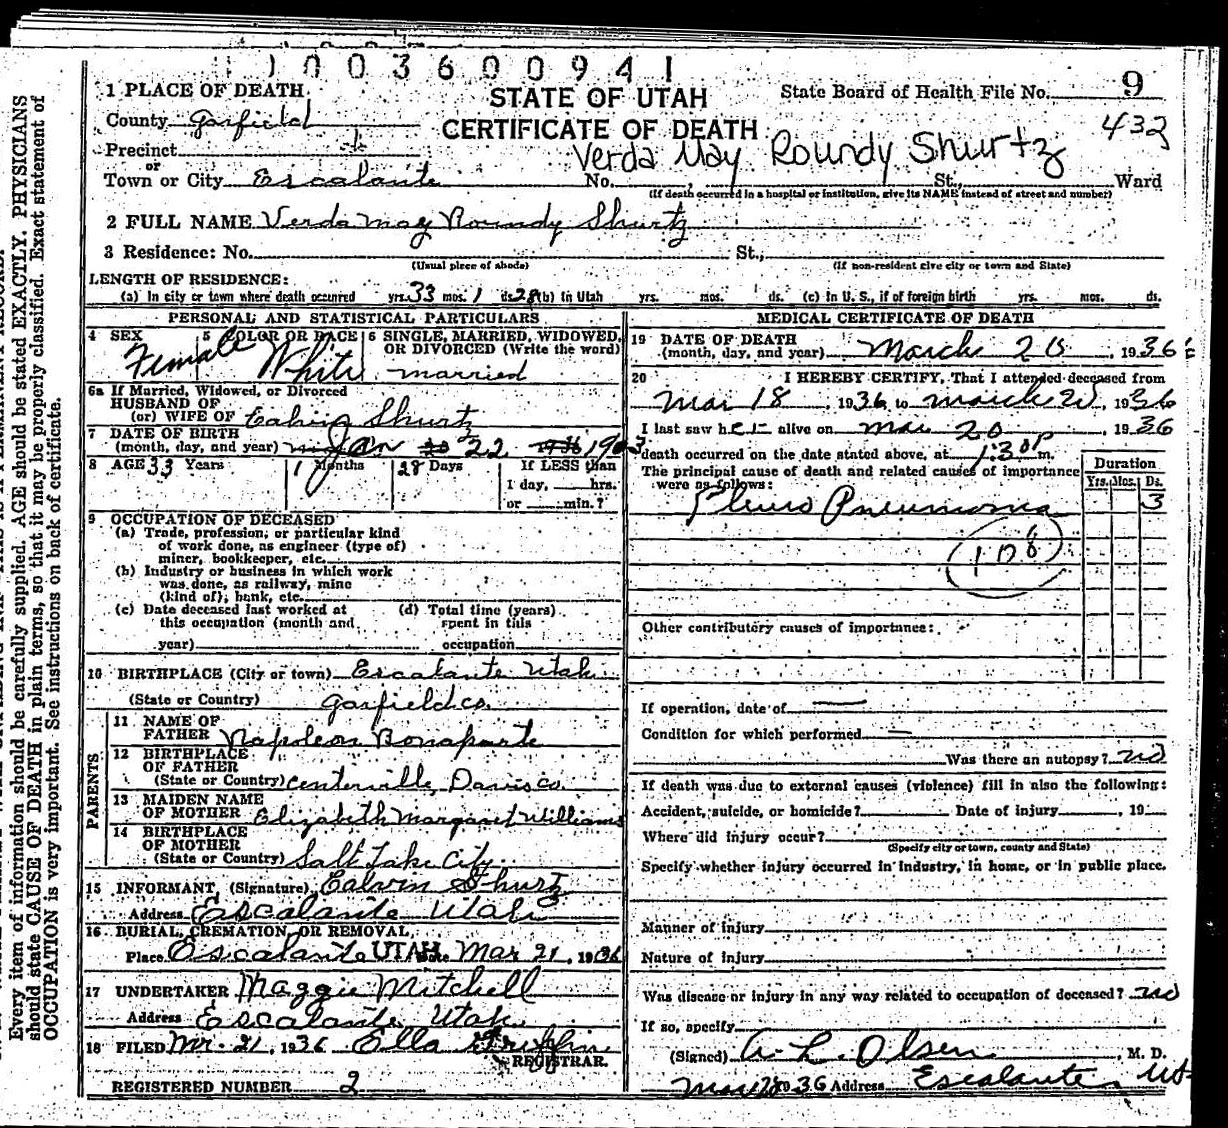 1003600941
1 PLACE OF DEATH
STATE OF UTAH
State Board of Health File No. 9
County Garfield
CERTIFICATE OF DEATH
432
Precinct
Verda May Roundy Shurtz
or
Town or City Escalante No. St., Ward
(If death occurred in a hospital or institution, give its NAME instead of street and number)
2 FULL NAME Verda May Roundy Shurtz
3 Residence: No. St.,
(Usual place of abode) (If non-resident give city or town and State)
LENGTH OF RESIDENCE:
(a) In city or town where death occurred yrs. 33 mos. 1 ds. 28 (b) In Utah yrs. mos. ds. (c) In U. S., if of foreign birth yrs. mos. ds.
PERSONAL AND STATISTICAL PARTICULARS
4 SEX 5 COLOR OR RACE 6 SINGLE, MARRIED, WIDOWED, OR DIVORCED (Write the word)
Female White married
6a If Married, Widowed, or Divorced
HUSBAND OF
(or) WIFE OF Shurtz
7 DATE OF BIRTH
(month, day, and year) Jan 22 1903
8 AGE 33 Years 1 Months 28 Days If LESS than
1 day, hrs.
or min.?
9 OCCUPATION OF DECEASED
(a) Trade, profession, or particular kind
of work done, as engineer (type of)
miner, bookkeeper, etc.
(b) Industry or business in which work
was done, as railway, mine
(kind of), bank, etc.
(c) Date deceased last worked at (d) Total time (years)
this occupation (month and spent in this
year) occupation
10 BIRTHPLACE (City or town) Escalante Utah
(State or Country) Garfield co.
PARENTS
11 NAME OF
FATHER Napoleon Bonaparte
12 BIRTHPLACE
OF FATHER
(State or Country) Centerville, Davis co.
13 MAIDEN NAME
OF MOTHER Elizabeth Margaret Williams
14 BIRTHPLACE
OF MOTHER
(State or Country) Salt Lake City
15 INFORMANT, (Signature) Calvin Shurtz
Address Escalante Utah
16 BURIAL, CREMATION, OR REMOVAL,
Place Escalante UTAH Date Mar 21, 1936
17 UNDERTAKER Maggie Mitchell
Address Escalante Utah
18 FILED Mr. 21, 1936 Ella Griffin
REGISTRAR.
REGISTERED NUMBER 2
MEDICAL CERTIFICATE OF DEATH
19 DATE OF DEATH
(month, day, and year) March 20, 1936
20 I HEREBY CERTIFY, That I attended deceased from
Mar 18, 1936, to March 20, 1936
I last saw her alive on Mar 20, 1936
death occurred on the date stated above, at 1:30 P m.
The principal cause of death and related causes of importance
were as follows:
Duration
Yrs. Mos. Ds.
Pleuro Pneumonia 3
108
Other contributory causes of importance:
If operation, date of —
Condition for which performed —
Was there an autopsy? no
If death was due to external causes (violence) fill in also the following:
Accident, suicide, or homicide? Date of injury , 19
Where did injury occur?
(Specify city or town, county and State)
Specify whether injury occurred in industry, in home, or in public place.
Manner of injury
Nature of injury
Was disease or injury in any way related to occupation of deceased? no
If so, specify
(Signed) A. L. Olsen, M. D.
1936 Address Escalante Ut
Every item of information should be carefully supplied. AGE should be stated EXACTLY. PHYSICIANS
should state CAUSE OF DEATH in plain terms, so that it may be properly classified. Exact statement of
OCCUPATION is very important. See instructions on back of certificate.